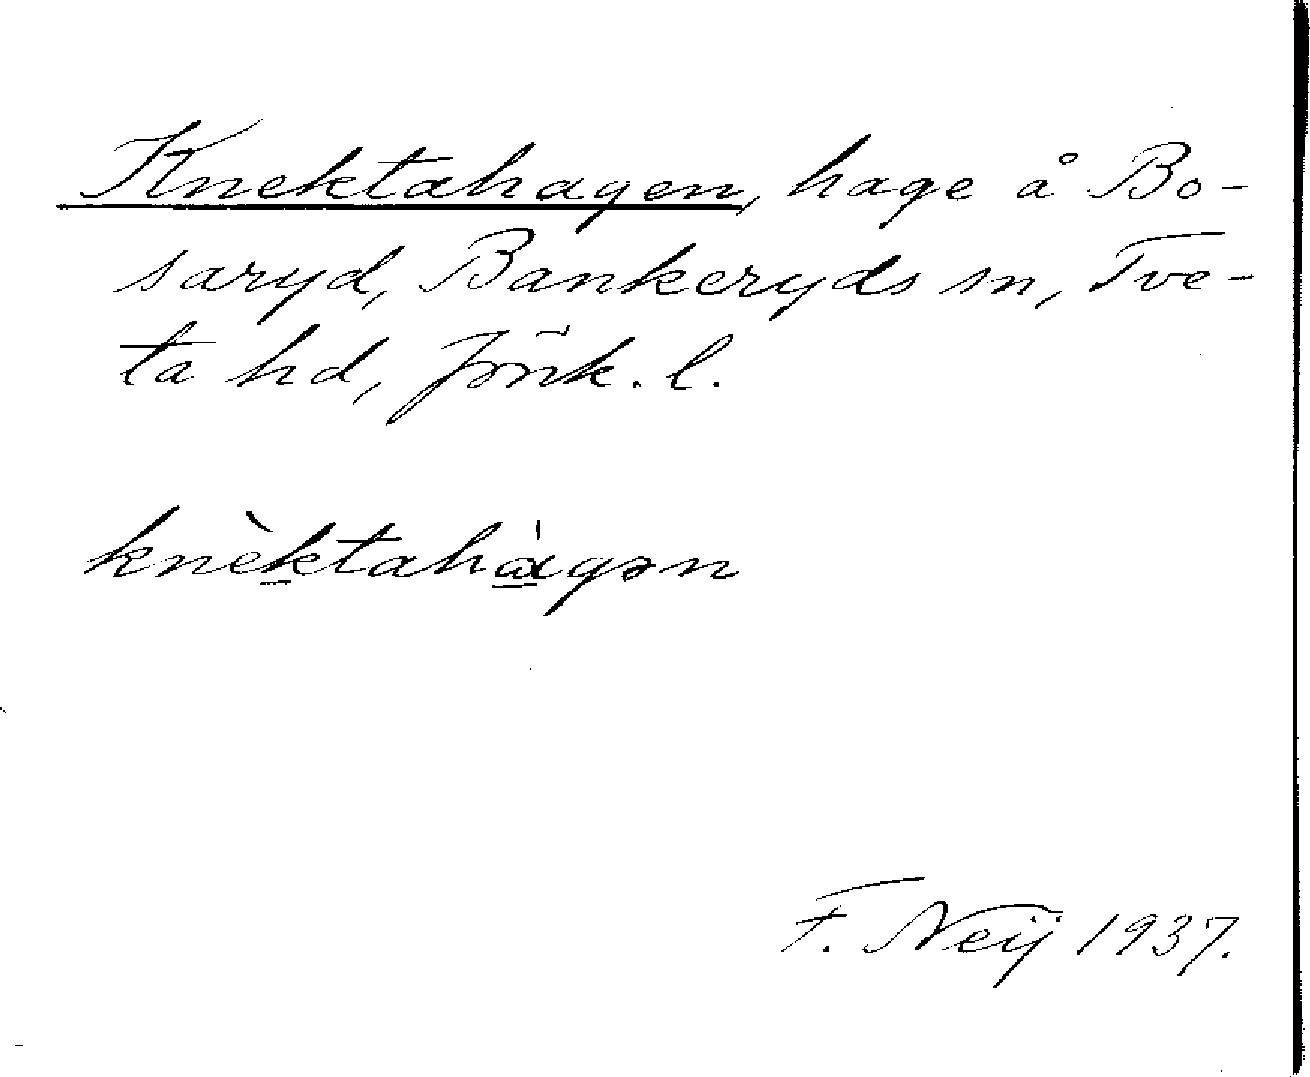 Knektahagen, hage å Bo-
saryd, Bankeryds sn, Tve-
ta hd, Jönk. l.
knèktahàgən
F. Neij 1937.